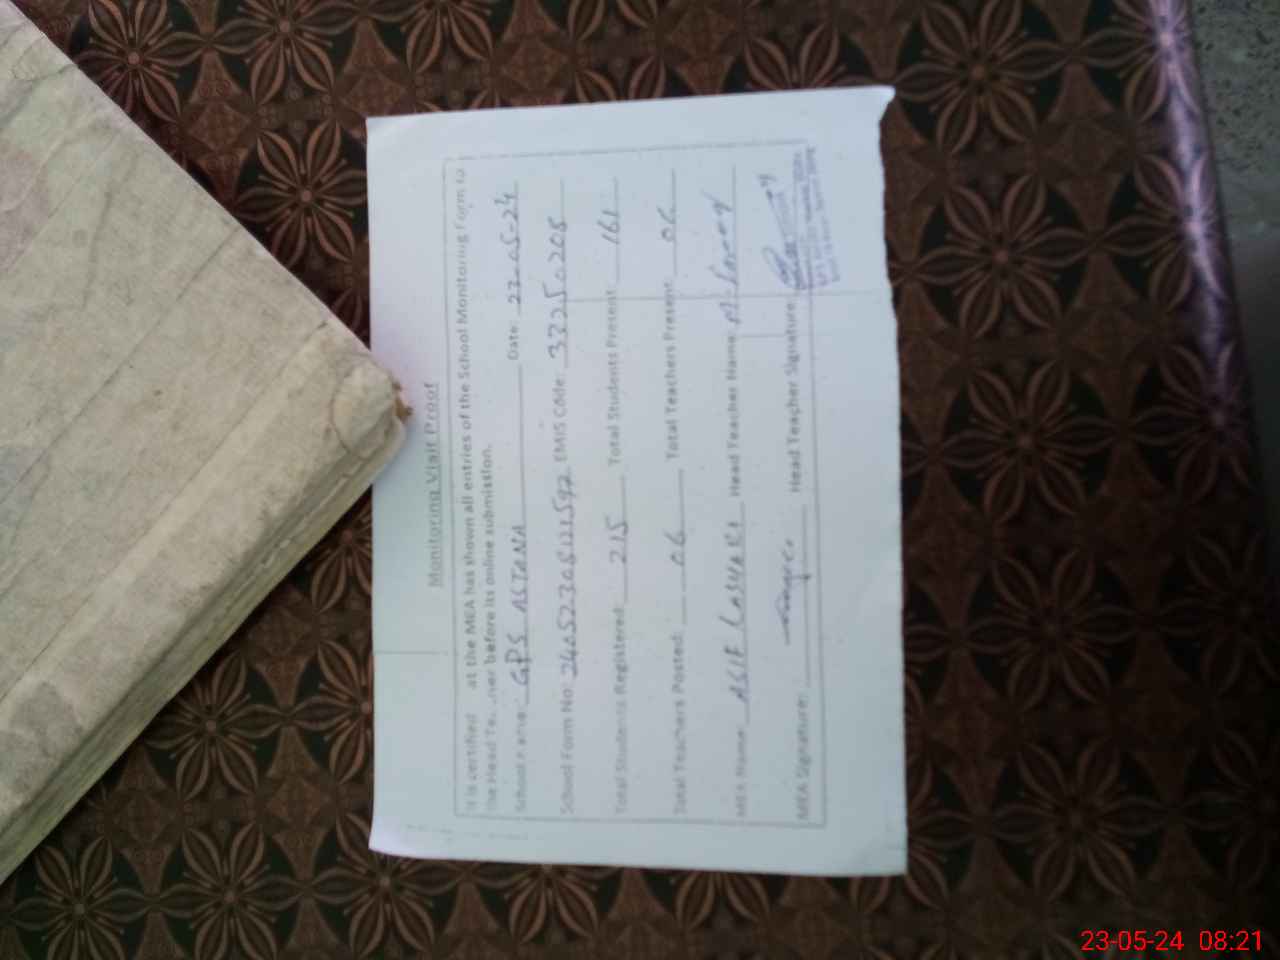 Monitoring Visit Proof
It is certified at the MEA has shown all entries of the School Monitoring Form to
the Head Te. .ner before its online submission.
School Name: GPS ASTANA Date: 23-05-24
School Form No: EMIS Code: 33250205
Total Students Registered: 215 Total Students Present: 161
Total Teachers Posted: 06 Total Teachers Present: 06
MEA Name: ASIF LASHARI Head Teacher Name:
MEA Signature: Head Teacher Signature:
23-05-24 08:21